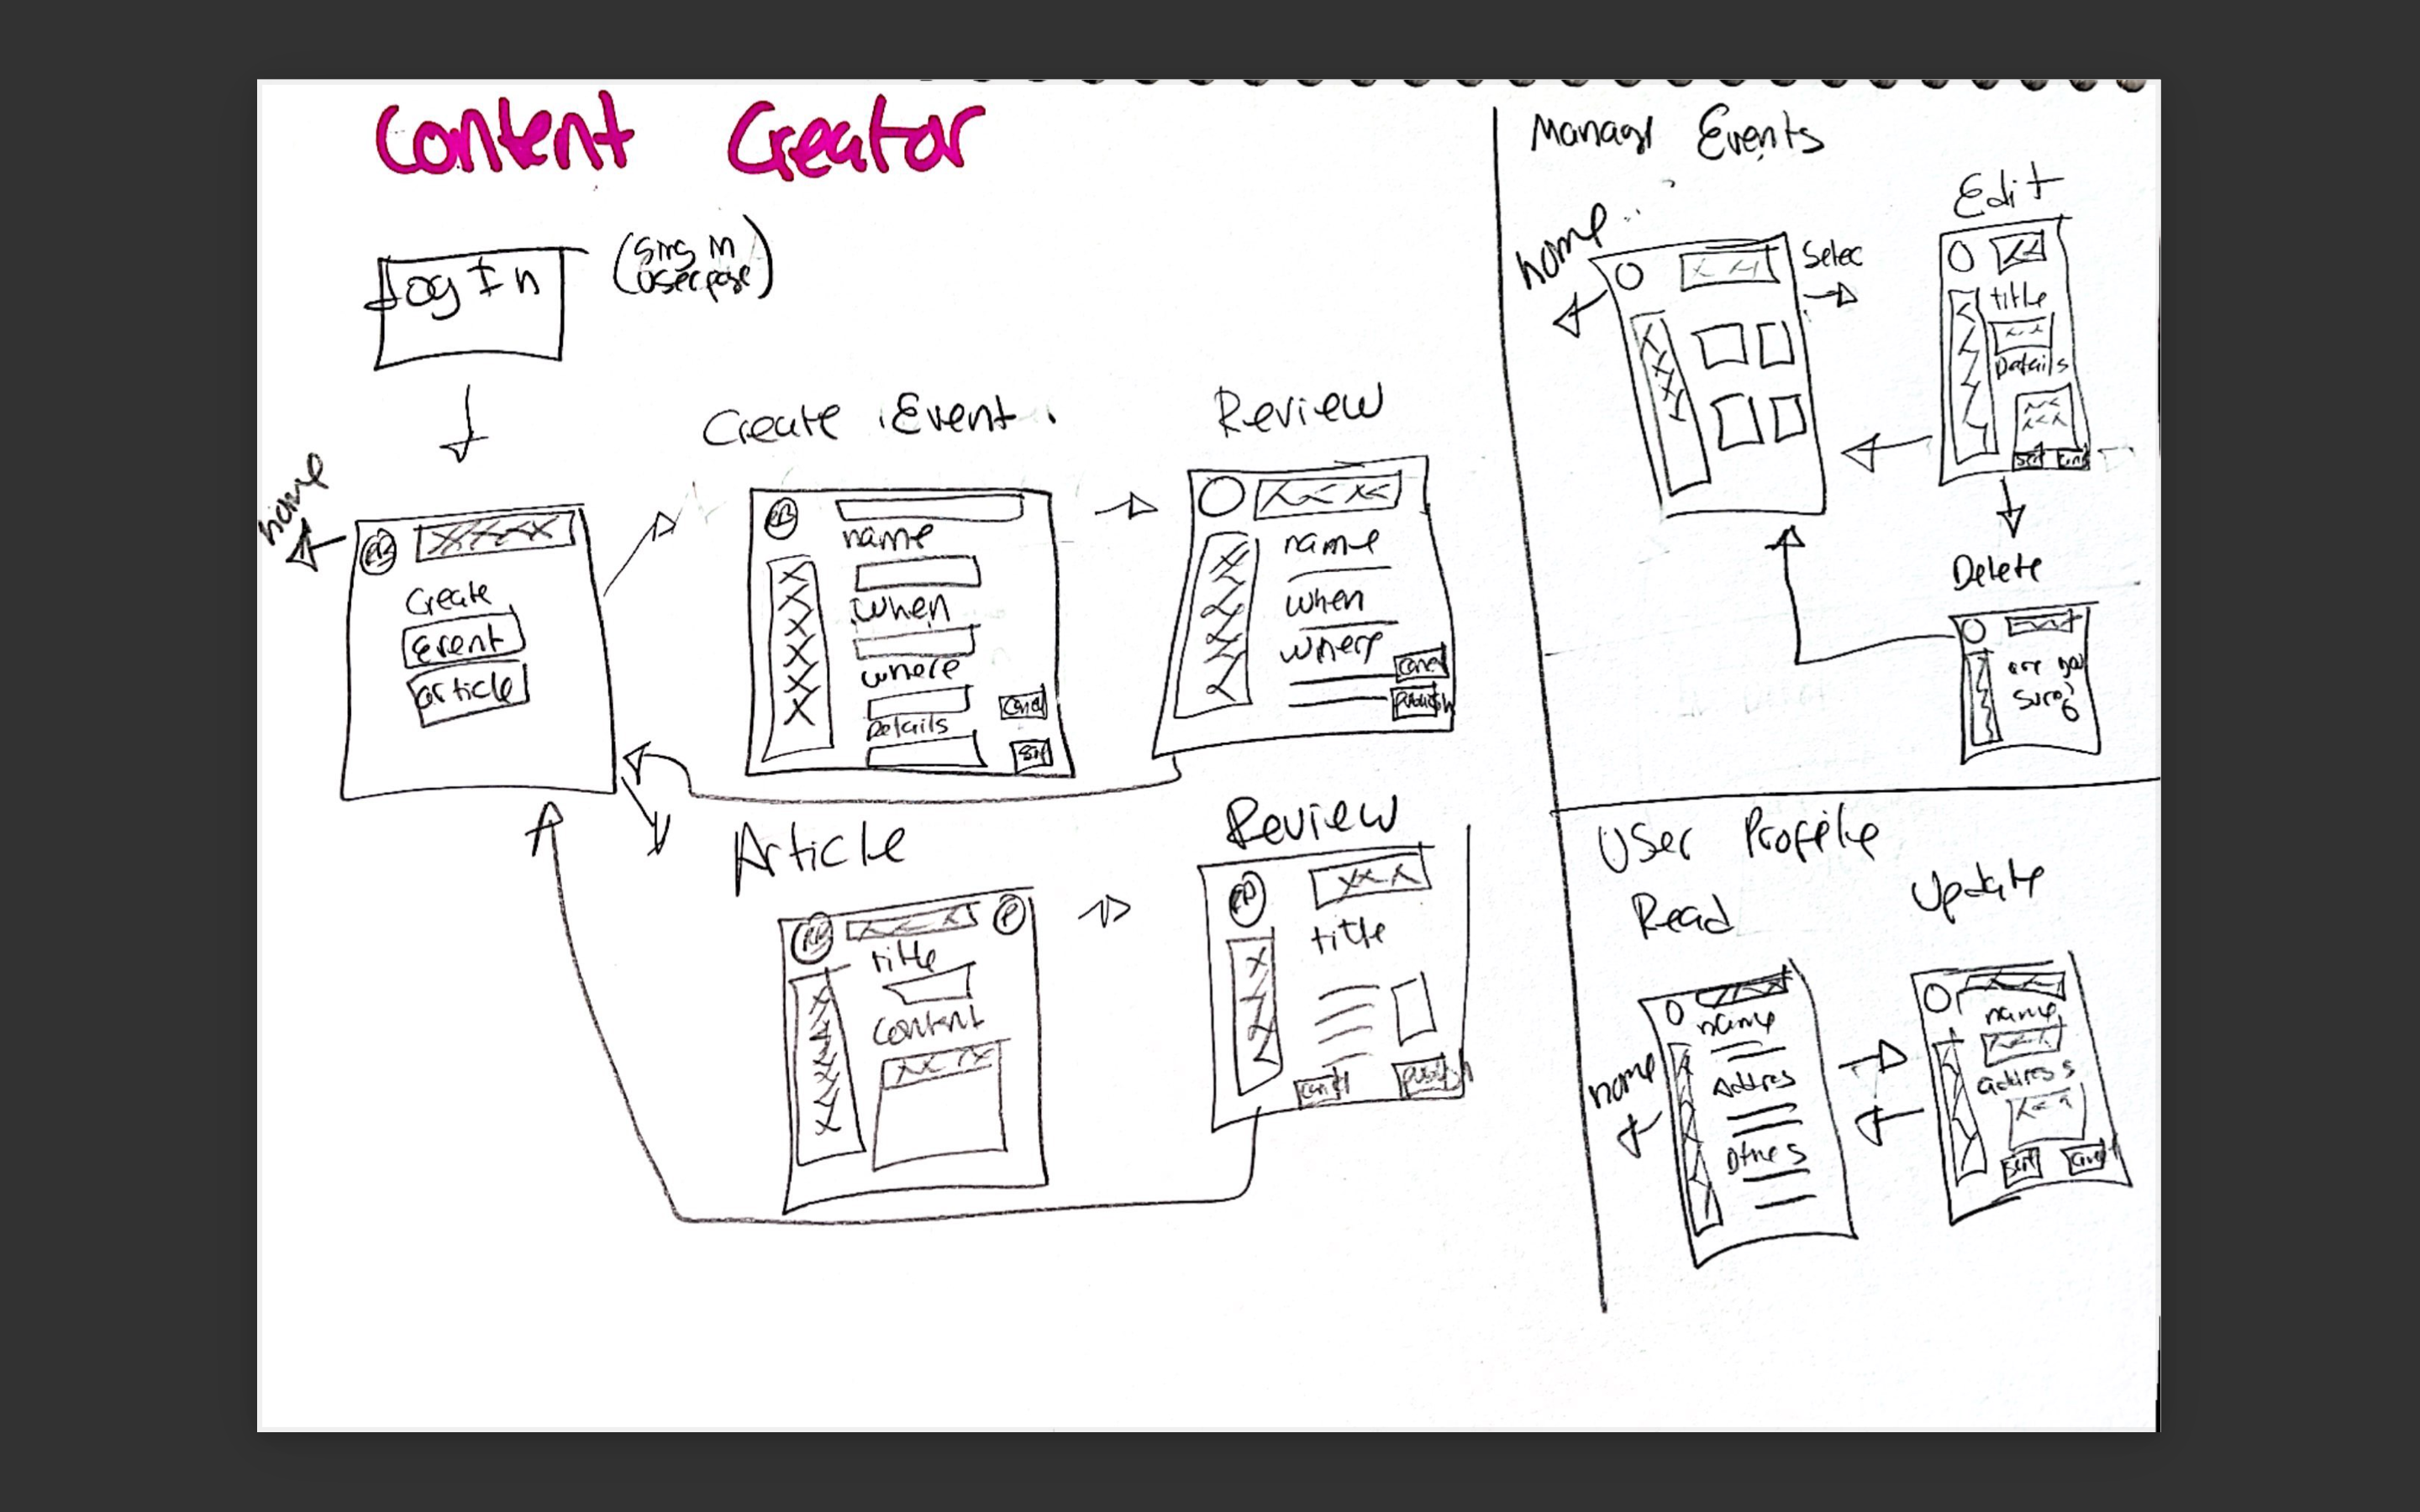 Content Creator
Log In
(Sing in
User page)
home
Create
Event
article
Create Event
name
when
where
Details
Cancel
Review
name
when
where
Cancel
Publish
Article
title
Content
Review
title
Cancel
Publish
Manage Events
home
Selec
Edit
title
Details
Delete
are you
sure?
User Profile
Read
home
name
Addres
Othes
Update
name
address